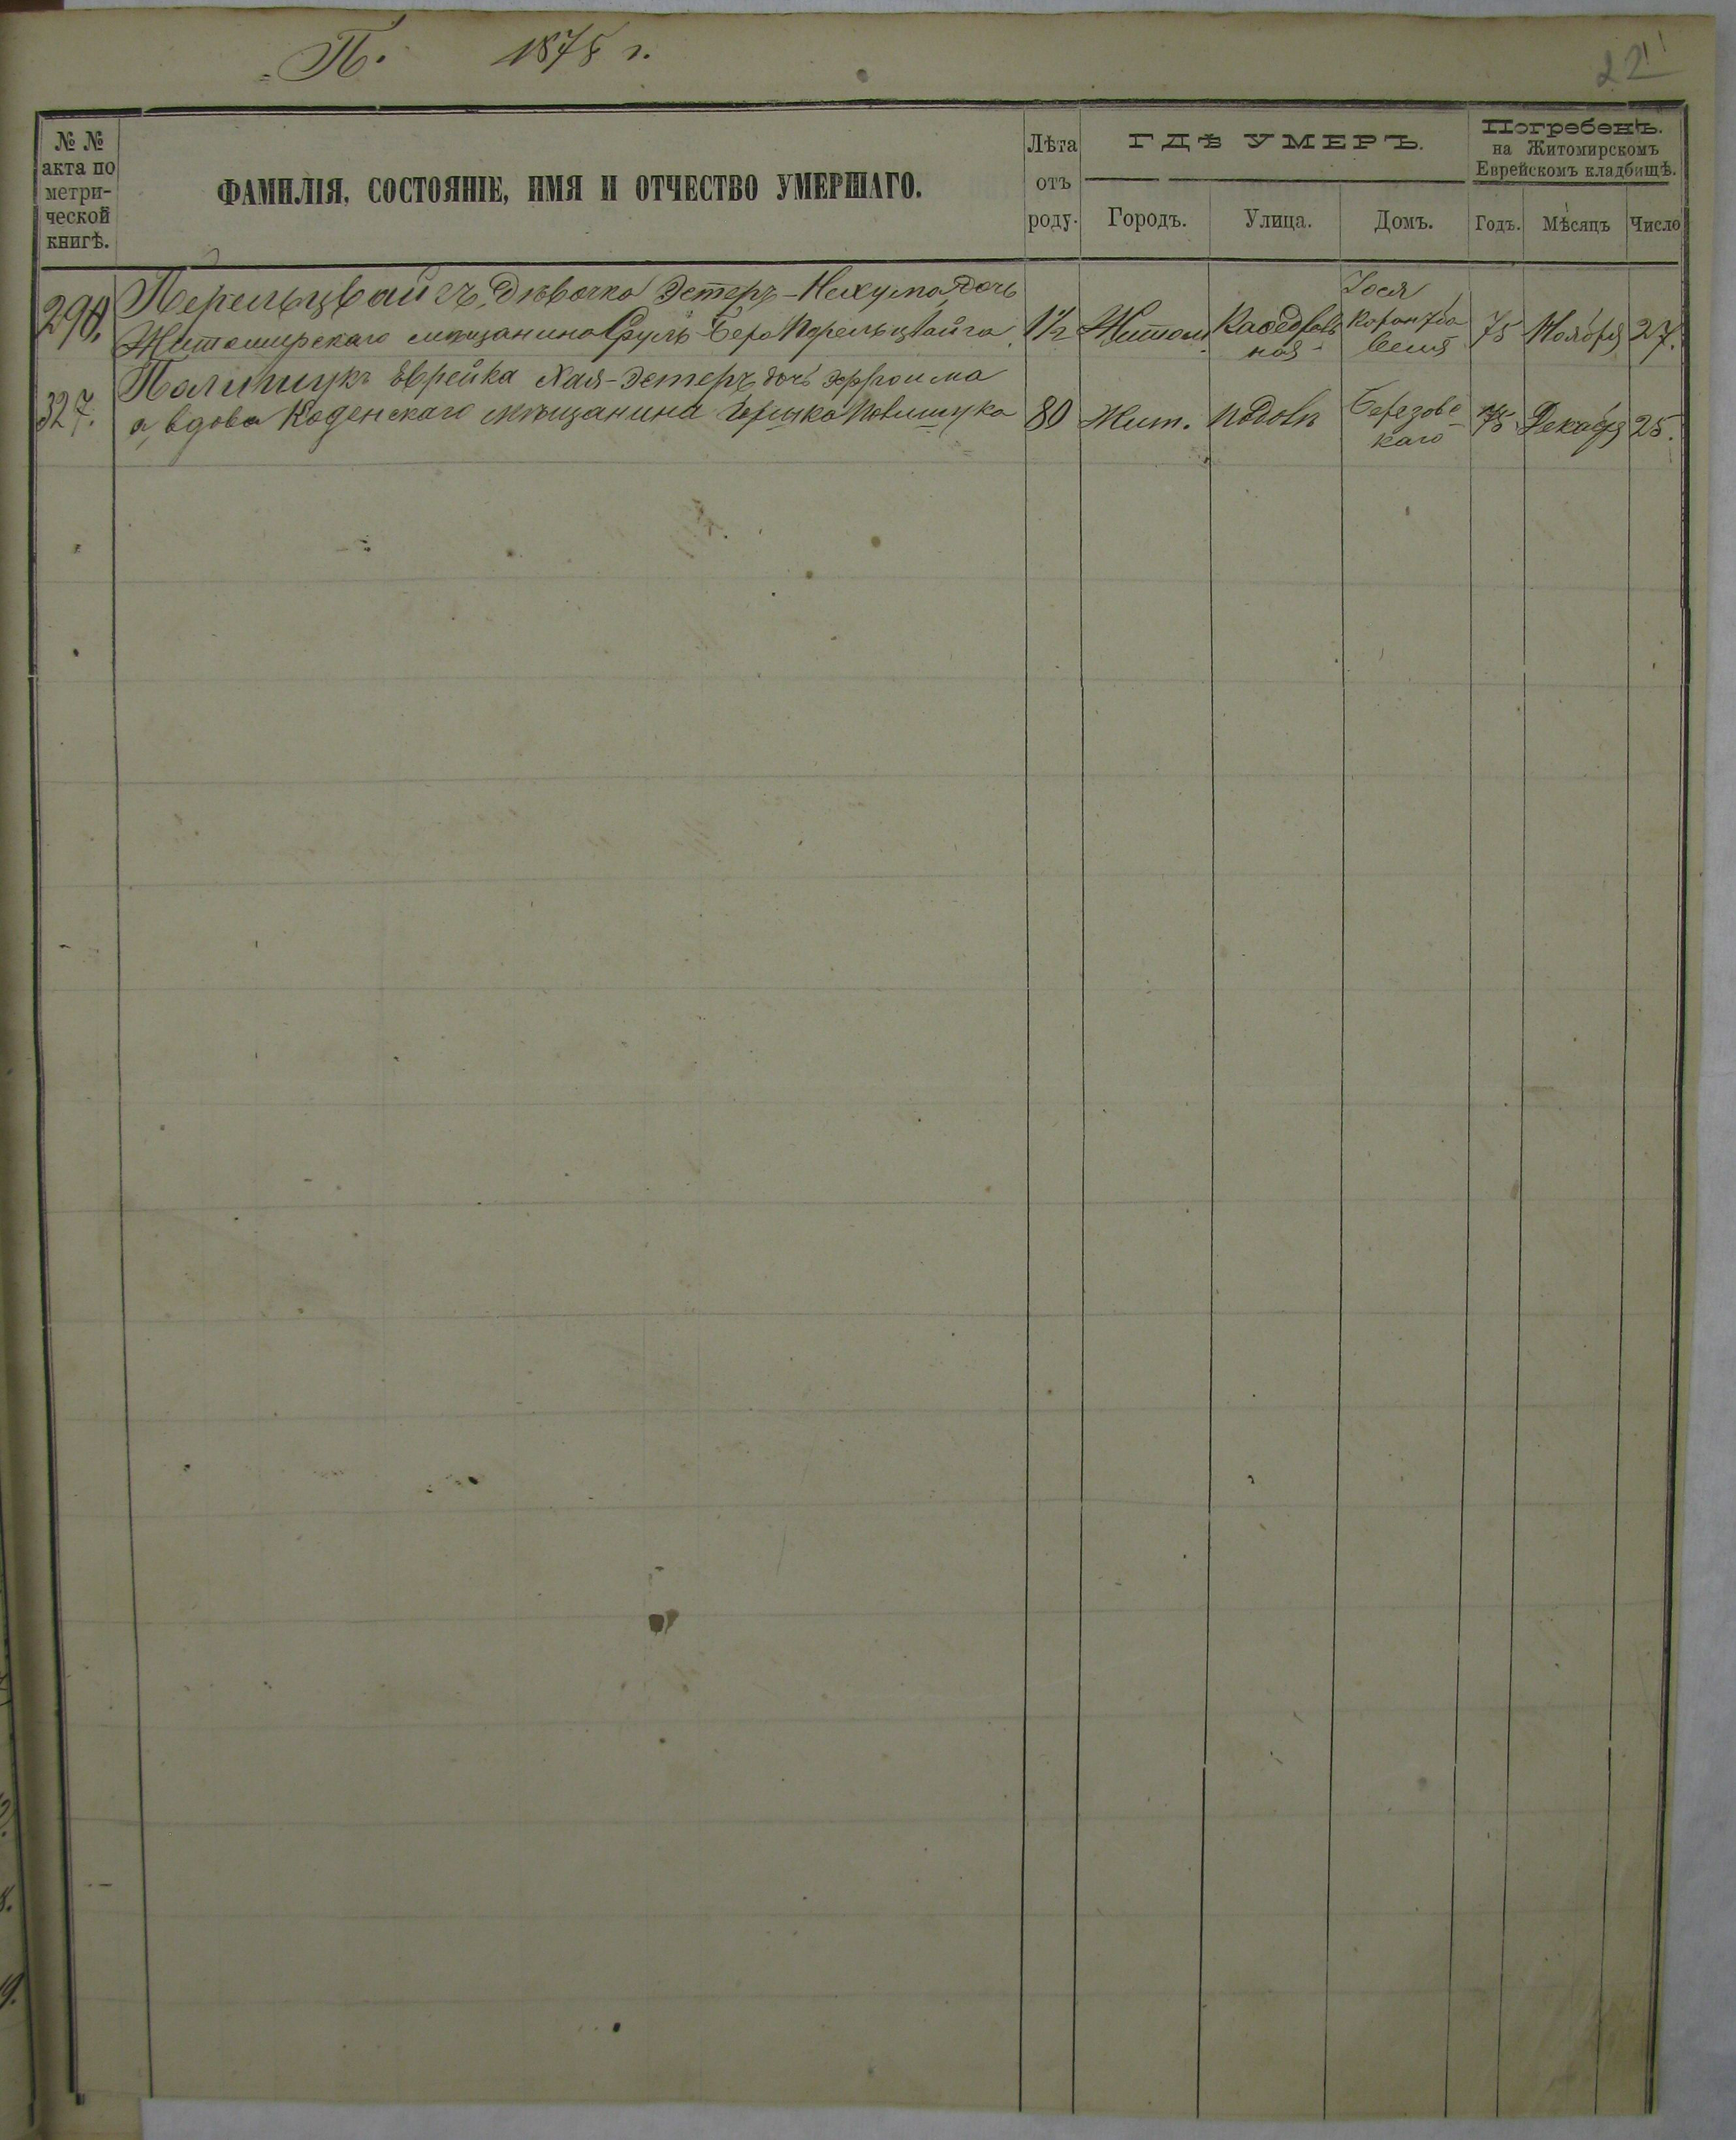 П. 1875 г.
22
№ №
акта по
метри-
ческой
книгѣ.
ФАМИЛІЯ, СОСТОЯНІЕ, ИМЯ И ОТЧЕСТВО УМЕРШАГО.
Лѣта
отъ
роду.
ГДѢ УМЕРЪ.
Городъ.
Улица.
Домъ.
Погребенъ.
на Житомирскомъ
Еврейскомъ кладбищѣ.
Годъ.
Мѣсяцъ
Число
290. Перельцвайгъ, Дѣвочка Эстеръ-Нехума дочь
Житомирскаго мѣщанина Сруль-Бера Перельцвайга. 1½ Житом. Каѳедраль
ная Іося 75 Ноября 27.
327. Полищукъ Еврейка Хая-Эстеръ дочь Эфроима
а, вдова Коденскаго мѣщанина Гершка Полищука 80 Жит. Березовс
каго 75 Декабря 25.